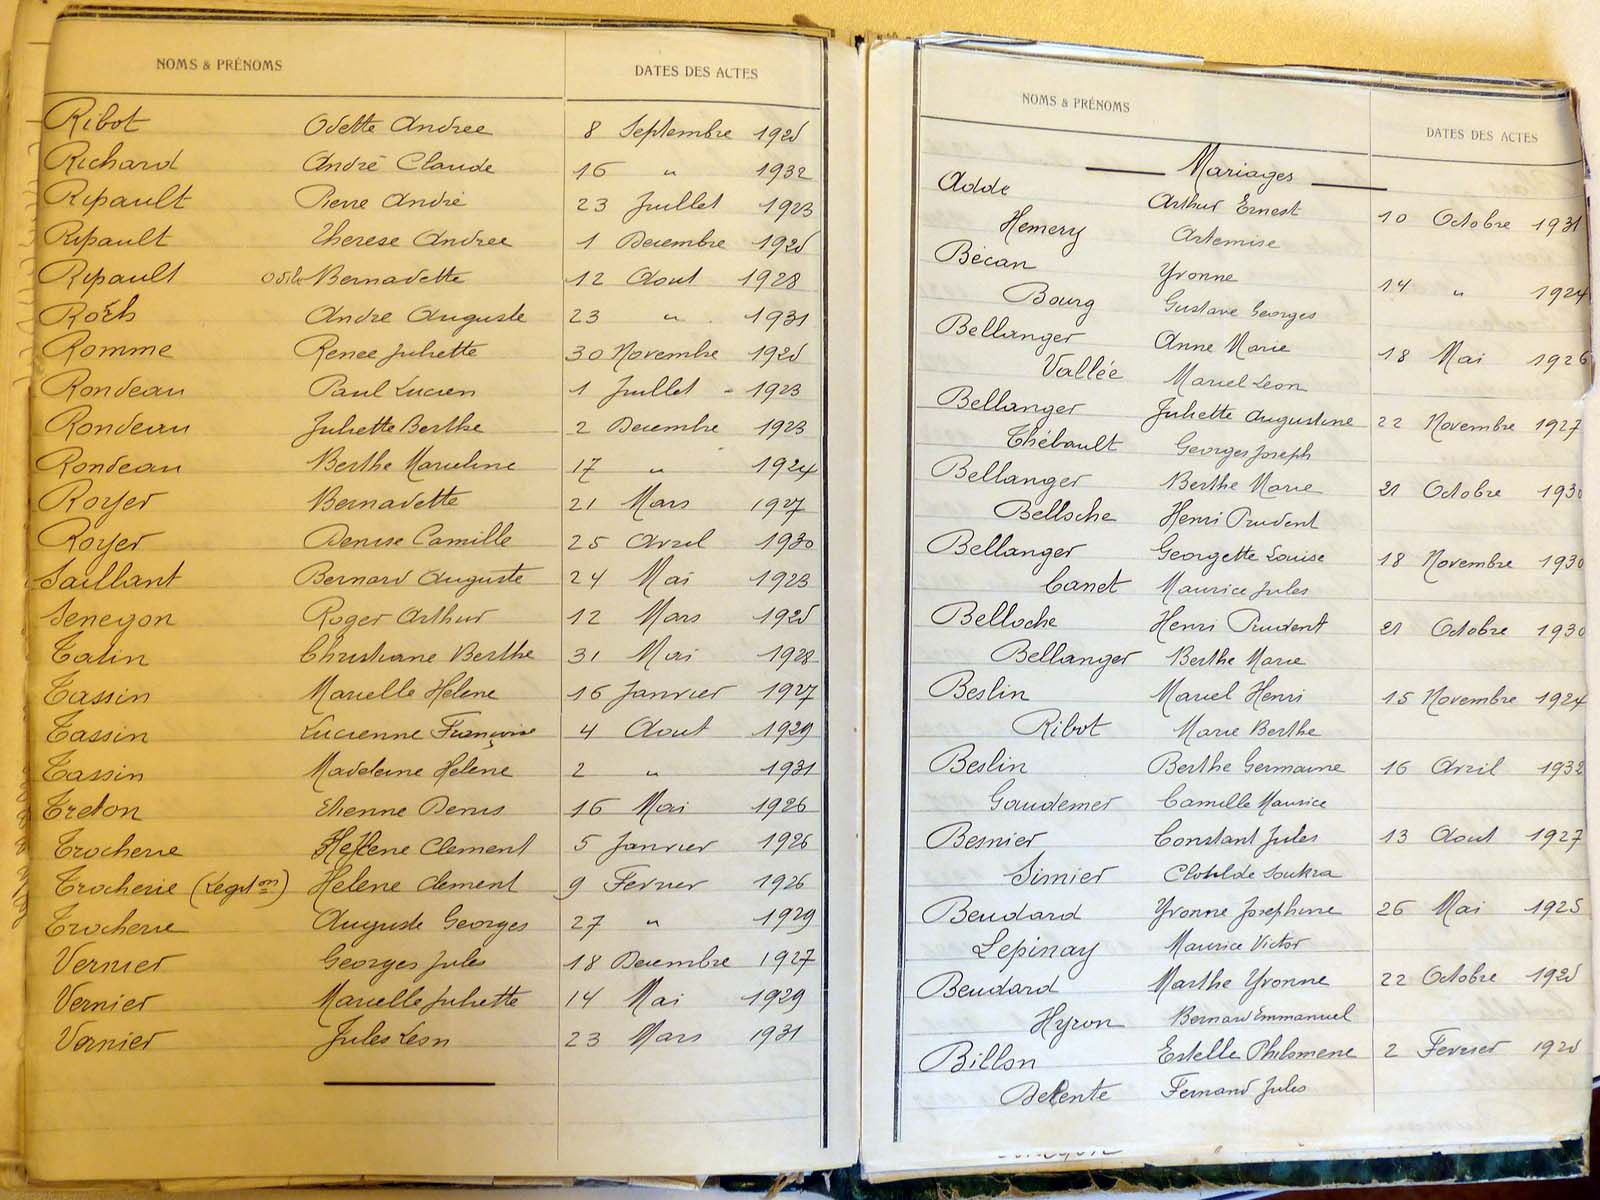 NOMS & PRÉNOMS DATES DES ACTES
Ribot Odette Andree 8 Septembre 1925
Richard André Claude 16 " 1932
Ripault Pierre André 23 Juillet 1923
Ripault Therese Andree 1 Decembre 1925
Ripault Odile Bernadette 12 Aout 1928
Roëh Andre Auguste 23 " 1931
Romme Renee Juliette 30 Novembre 1925
Rondeau Paul Lucien 1 Juillet - 1923
Rondeau Juliette Berthe 2 Decembre 1923
Rondeau Berthe Marceline 17 " 1924
Royer Bernadette 21 Mars 1927
Royer Denise Camille 25 Avril 1930
Saillant Bernard Auguste 24 Mai 1923
Senegon Roger Arthur 12 Mars 1925
Talin Christiane Berthe 31 Mai 1928
Tassin Marcelle Helene 16 Janvier 1927
Tassin Lucienne Françoise 4 Aout 1929
Tassin Madeleine Helene 2 " 1931
Treton Etienne Denis 16 Mai 1926
Trocherie Helene Clement 5 Janvier 1926
Trocherie (Legit on) Helene Clement 9 Fevrier 1926
Trocherie Auguste Georges 27 " 1929
Vernier Georges Jules 18 Decembre 1927
Vernier Marcelle Juliette 14 Mai 1929
Vernier Jules Leon 23 Mars 1931
NOMS & PRÉNOMS DATES DES ACTES
Mariages
Adde Arthur Ernest 10 Octobre 1931
Hemery Artemise
Bécan Yvonne 14 " 1924
Bourg Gustave Georges
Bellanger Anne Marie 18 Mai 1926
Vallée Marcel Leon
Bellanger Juliette Augustine 22 Novembre 1927
Thébault Georges Joseph
Bellanger Berthe Marie 21 Octobre 1930
Belloche Henri Prudent
Bellanger Georgette Louise 18 Novembre 1930
Canet Maurice Jules
Belloche Henri Prudent 21 Octobre 1930
Bellanger Berthe Marie
Beslin Marcel Henri 15 Novembre 1924
Ribot Marie Berthe
Beslin Berthe Germaine 16 Avril 1932
Gaudemer Camille Maurice
Besnier Constant Jules 13 Aout 1927
Simier Clotilde
Beudard Yvonne Josephine 26 Mai 1925
Lepinay Maurice Victor
Beudard Marthe Yvonne 22 Octobre 1925
Hyron Bernard Emmanuel
Billon Estelle Philomene 2 Fevrier 1925
Delente Fernand Jules